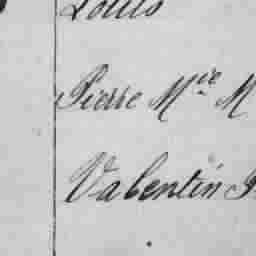 Louis
Pierre Mie M
Valentin